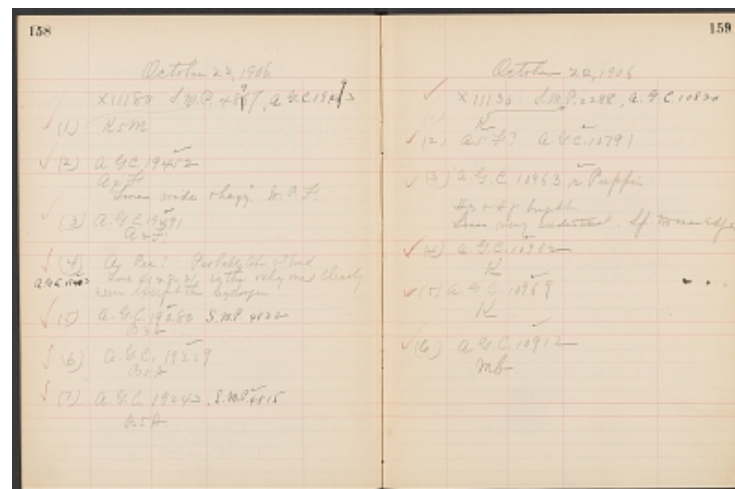 158
October 22, 1906
X11180 S.M.P. 4867, A.G.C. 194
(1) K5M
(2) A.G.C. 19452
A2F
Lines wide & hazy. W.P.F.
(3) A.G.C. 19
A2F.
(4) Ay Pec? Probably
is the only one clearly
seen except the hydrogen
(5) A.G.C. 19280 S.M.P. 4822
(6) A.G.C. 19229
B5A
(7) A.G.C. 19243, S.M.P. 4815
B5A
159
October 22, 1906
X11130 S.M.P. 2288, A.G.C. 10820
K
(2) A5F? A.G.C. 10791
(3) A.G.C. 10963 Puppis
bright
Lines very indistinct. Sp. near edge
(4) A.G.C. 10982
K
(5) A.G.C. 10969
K
(6) A.G.C. 10912
Mb